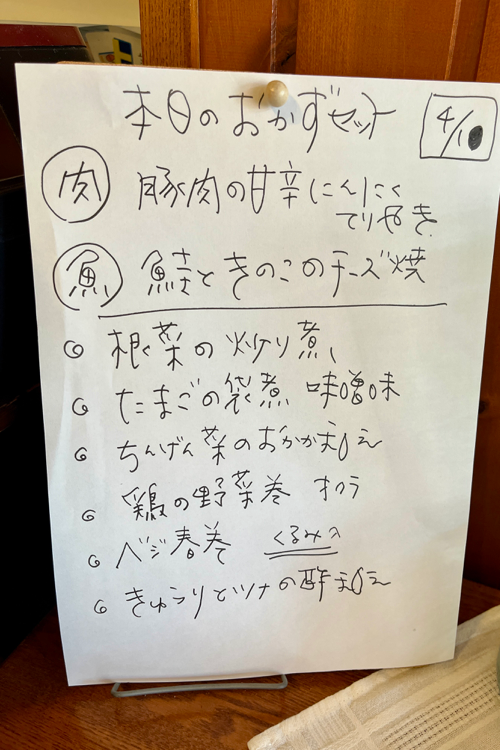 本日のおかずセット
4/10
肉 豚肉の甘辛にんにく
てりやき
魚 鮭ときのこのチーズ焼
根菜の炒り煮
たまごの袋煮 味噌味
ちんげん菜のおかか和え
鶏の野菜巻 オクラ
ベジ春巻 くるみ入
きゅうりとツナの酢和え